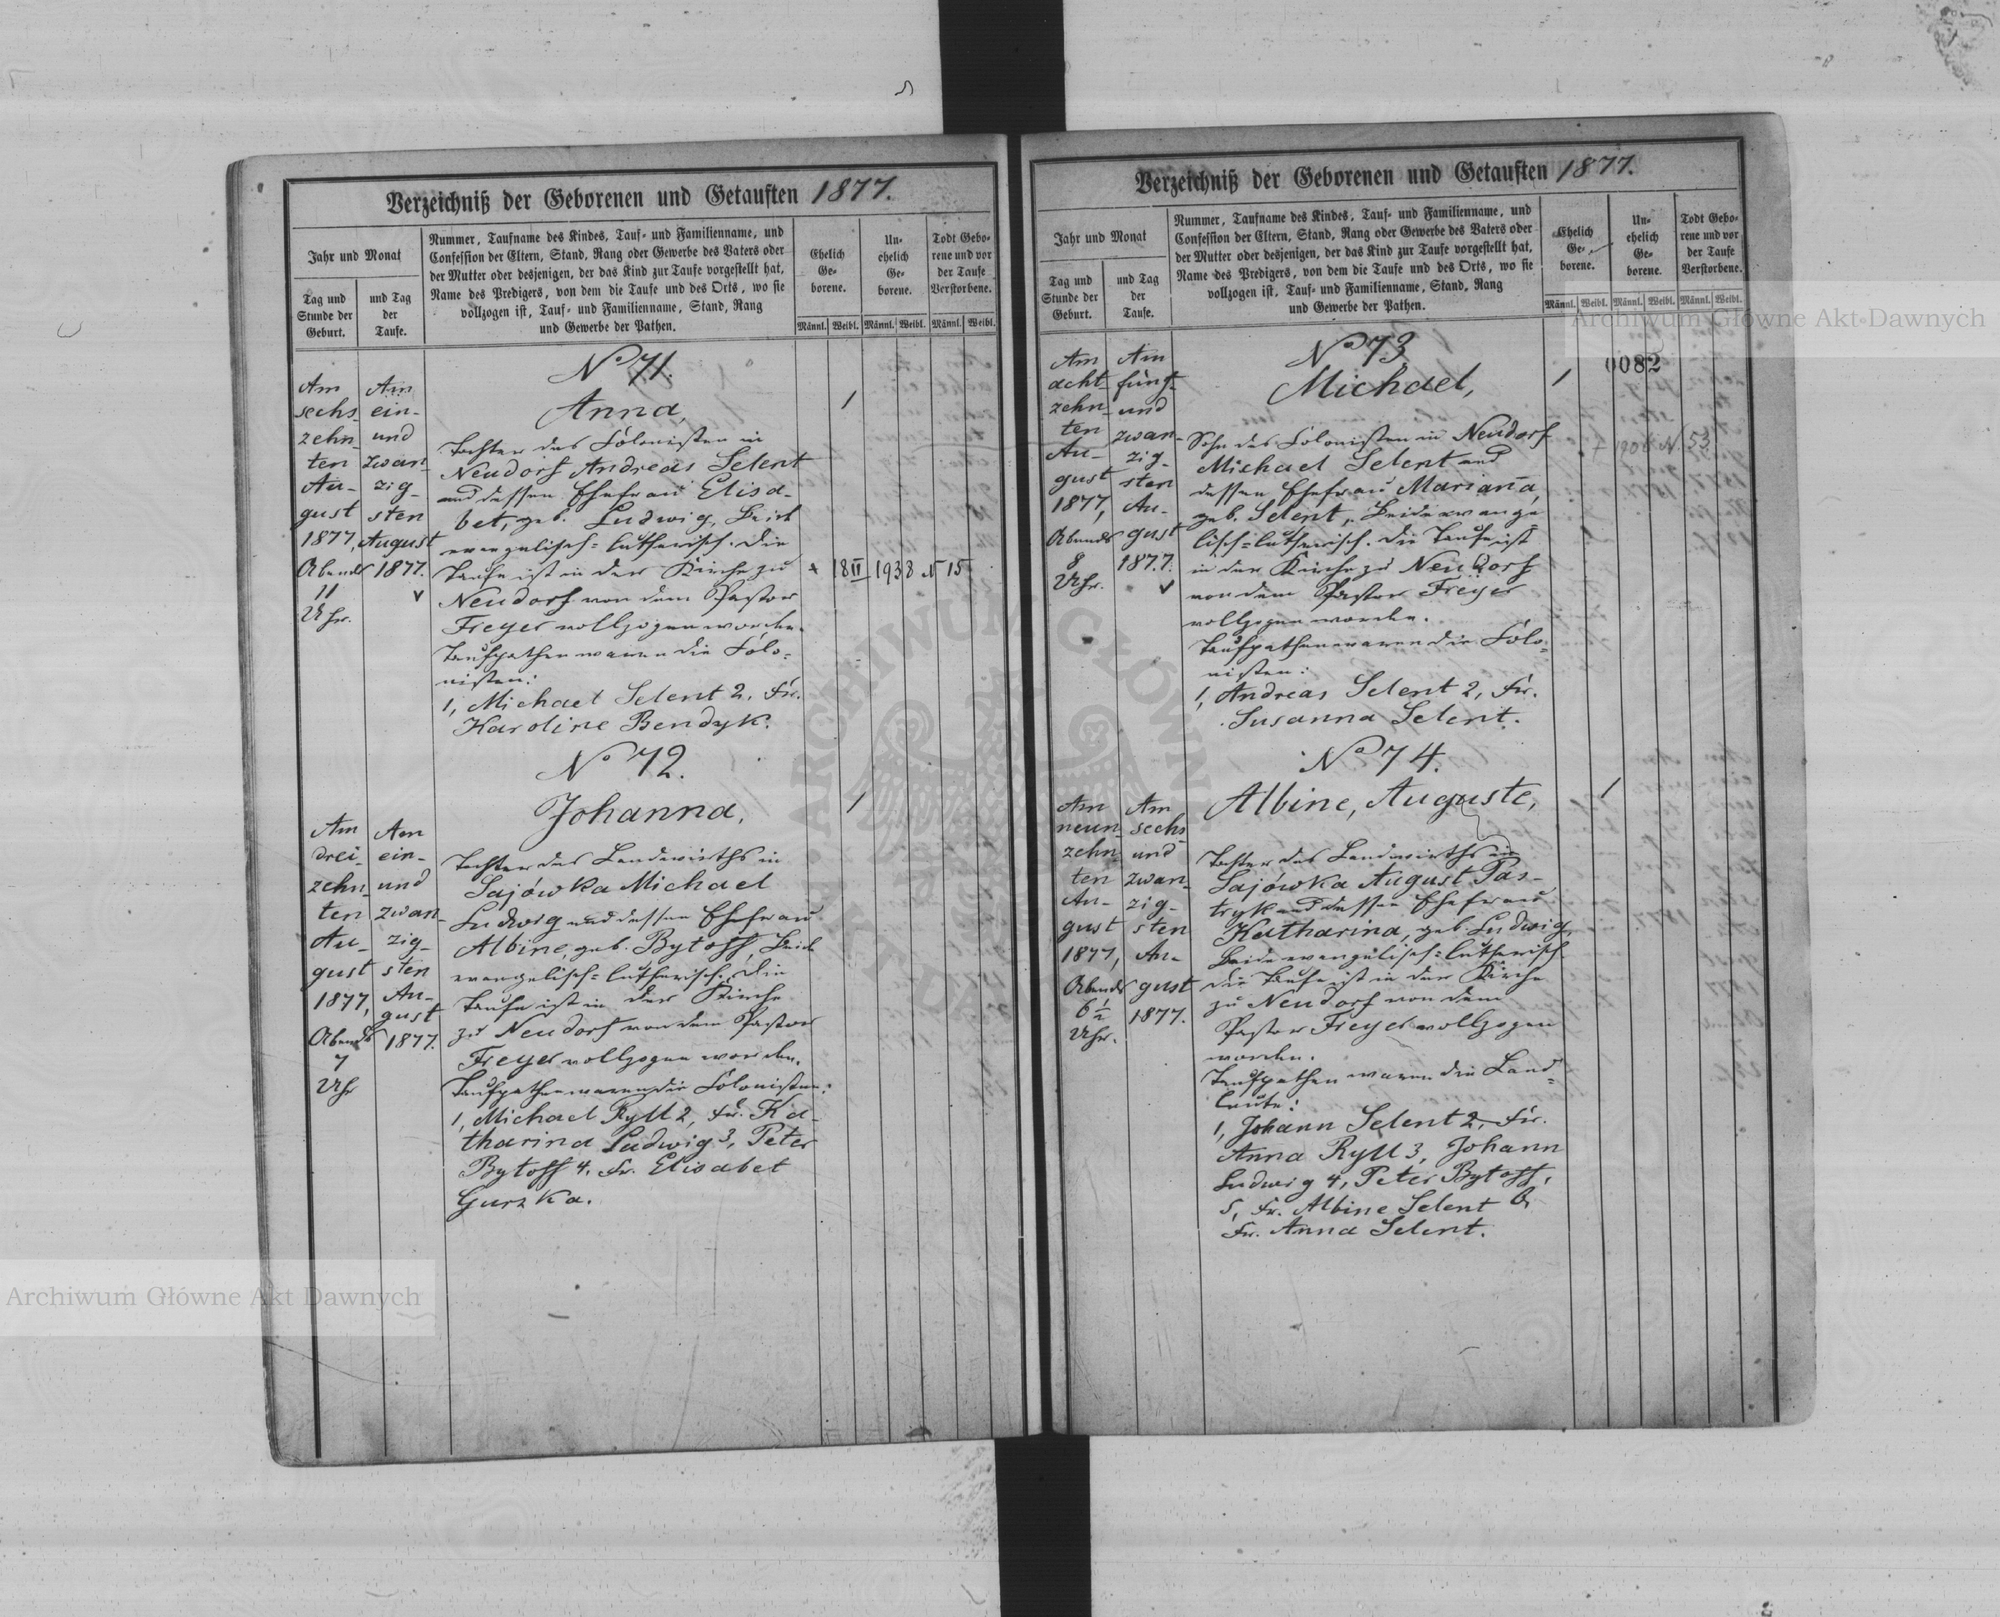 Verzeichniß der Geborenen und Getauften 1877.
Jahr und Monat
Tag und
Stunde der
Geburt.
und Tag
der
Taufe.
Nummer, Taufname des Kindes, Tauf- und Familienname, und
Confession der Eltern, Stand, Rang oder Gewerbe des Vaters oder
der Mutter oder desjenigen, der das Kind zur Taufe vorgestellt hat,
Name des Predigers, von dem die Taufe und des Orts, wo sie
vollzogen ist, Tauf- und Familienname, Stand, Rang
und Gewerbe der Pathen.
Ehelich
Ge-
borene.
Un-
ehelich
Ge-
borene.
Todt Gebo-
rene und vor
der Taufe
Verstorbene.
Männl. Weibl. Männl. Weibl. Männl. Weibl.
Am
sechs-
zehn-
ten
Au-
gust
1877,
Abends
11
Uhr.
Am
ein-
und
zwan-
zig-
sten
August
1877.
No 71.
Anna,
Tochter des Colonisten in
Neudorf Andreas Selent
und dessen Ehefrau Elisa-
bet, geb. Ludwig, Beide
evangelisch-lutherisch. Die
Taufe ist in der Kirche zu
Neudorf von dem Pastor
Freyer vollzogen worden.
Taufpathen waren die Colo-
nisten:
1, Michael Selent 2, Fr.
Karoline Bendyk.
+ 18 II 1938 N 15
Am
drei-
zehn-
ten
Au-
gust
1877,
Abends
7
Uhr
Am
ein-
und
zwan-
zig-
sten
Au-
gust
1877.
No 72.
Johanna,
Tochter des Landwirths in
Sajówka Michael
Ludwig und dessen Ehefrau
Albine, geb. Bytoff, Beide
evangelisch-lutherisch. Die
Taufe ist in der Kirche
zu Neudorf von dem Pastor
Freyer vollzogen worden.
Taufpathen waren die Colonisten:
1, Michael Ryll 2, Fr. Ka-
tharina Ludwig 3, Peter
Bytoff 4, Fr. Elisabet
Gurzka.
Verzeichniß der Geborenen und Getauften 1877.
Jahr und Monat
Tag und
Stunde der
Geburt.
und Tag
der
Taufe.
Nummer, Taufname des Kindes, Tauf- und Familienname, und
Confession der Eltern, Stand, Rang oder Gewerbe des Vaters oder
der Mutter oder desjenigen, der das Kind zur Taufe vorgestellt hat,
Name des Predigers, von dem die Taufe und des Orts, wo sie
vollzogen ist, Tauf- und Familienname, Stand, Rang
und Gewerbe der Pathen.
Ehelich
Ge-
borene.
Un-
ehelich
Ge-
borene.
Todt Gebo-
rene und vor
der Taufe
Verstorbene.
Männl. Weibl. Männl. Weibl. Männl. Weibl.
0082
Am
acht-
zehn-
ten
Au-
gust
1877,
Abends
8
Uhr.
Am
fünf-
und
zwan-
zig-
sten
Au-
gust
1877.
No 73,
Michael,
Sohn des Colonisten in Neudorf
Michael Selent und
dessen Ehefrau Mariana,
geb. Selent, Beide evange-
lisch-lutherisch. Die Taufe ist
in der Kirche zu Neudorf
von dem Pastor Freyer
vollzogen worden.
Taufpathen waren die Colo-
nisten:
1, Andreas Selent 2, Fr.
Susanna Selent.
+ 1906 N. 53
Am
neun-
zehn-
ten
Au-
gust
1877,
Abends
6 1/2
Uhr.
Am
sechs
und
zwan-
zig-
sten
Au-
gust
1877.
No 74.
Albine, Auguste,
Tochter des Landwirths in
Sajówka August Pas-
tryk und dessen Ehefrau
Katharina, geb. Ludwig,
Beide evangelisch-lutherisch
Die Taufe ist in der Kirche
zu Neudorf von dem
Pastor Freyer vollzogen
worden.
Taufpathen waren die Land-
leute:
1, Johann Selent 2, Fr.
Anna Ryll 3, Johann
Ludwig 4, Peter Bytoff,
5, Fr. Albine Selent 6,
Fr. Anna Selent.
Archiwum Główne Akt Dawnych
Archiwum Główne Akt Dawnych